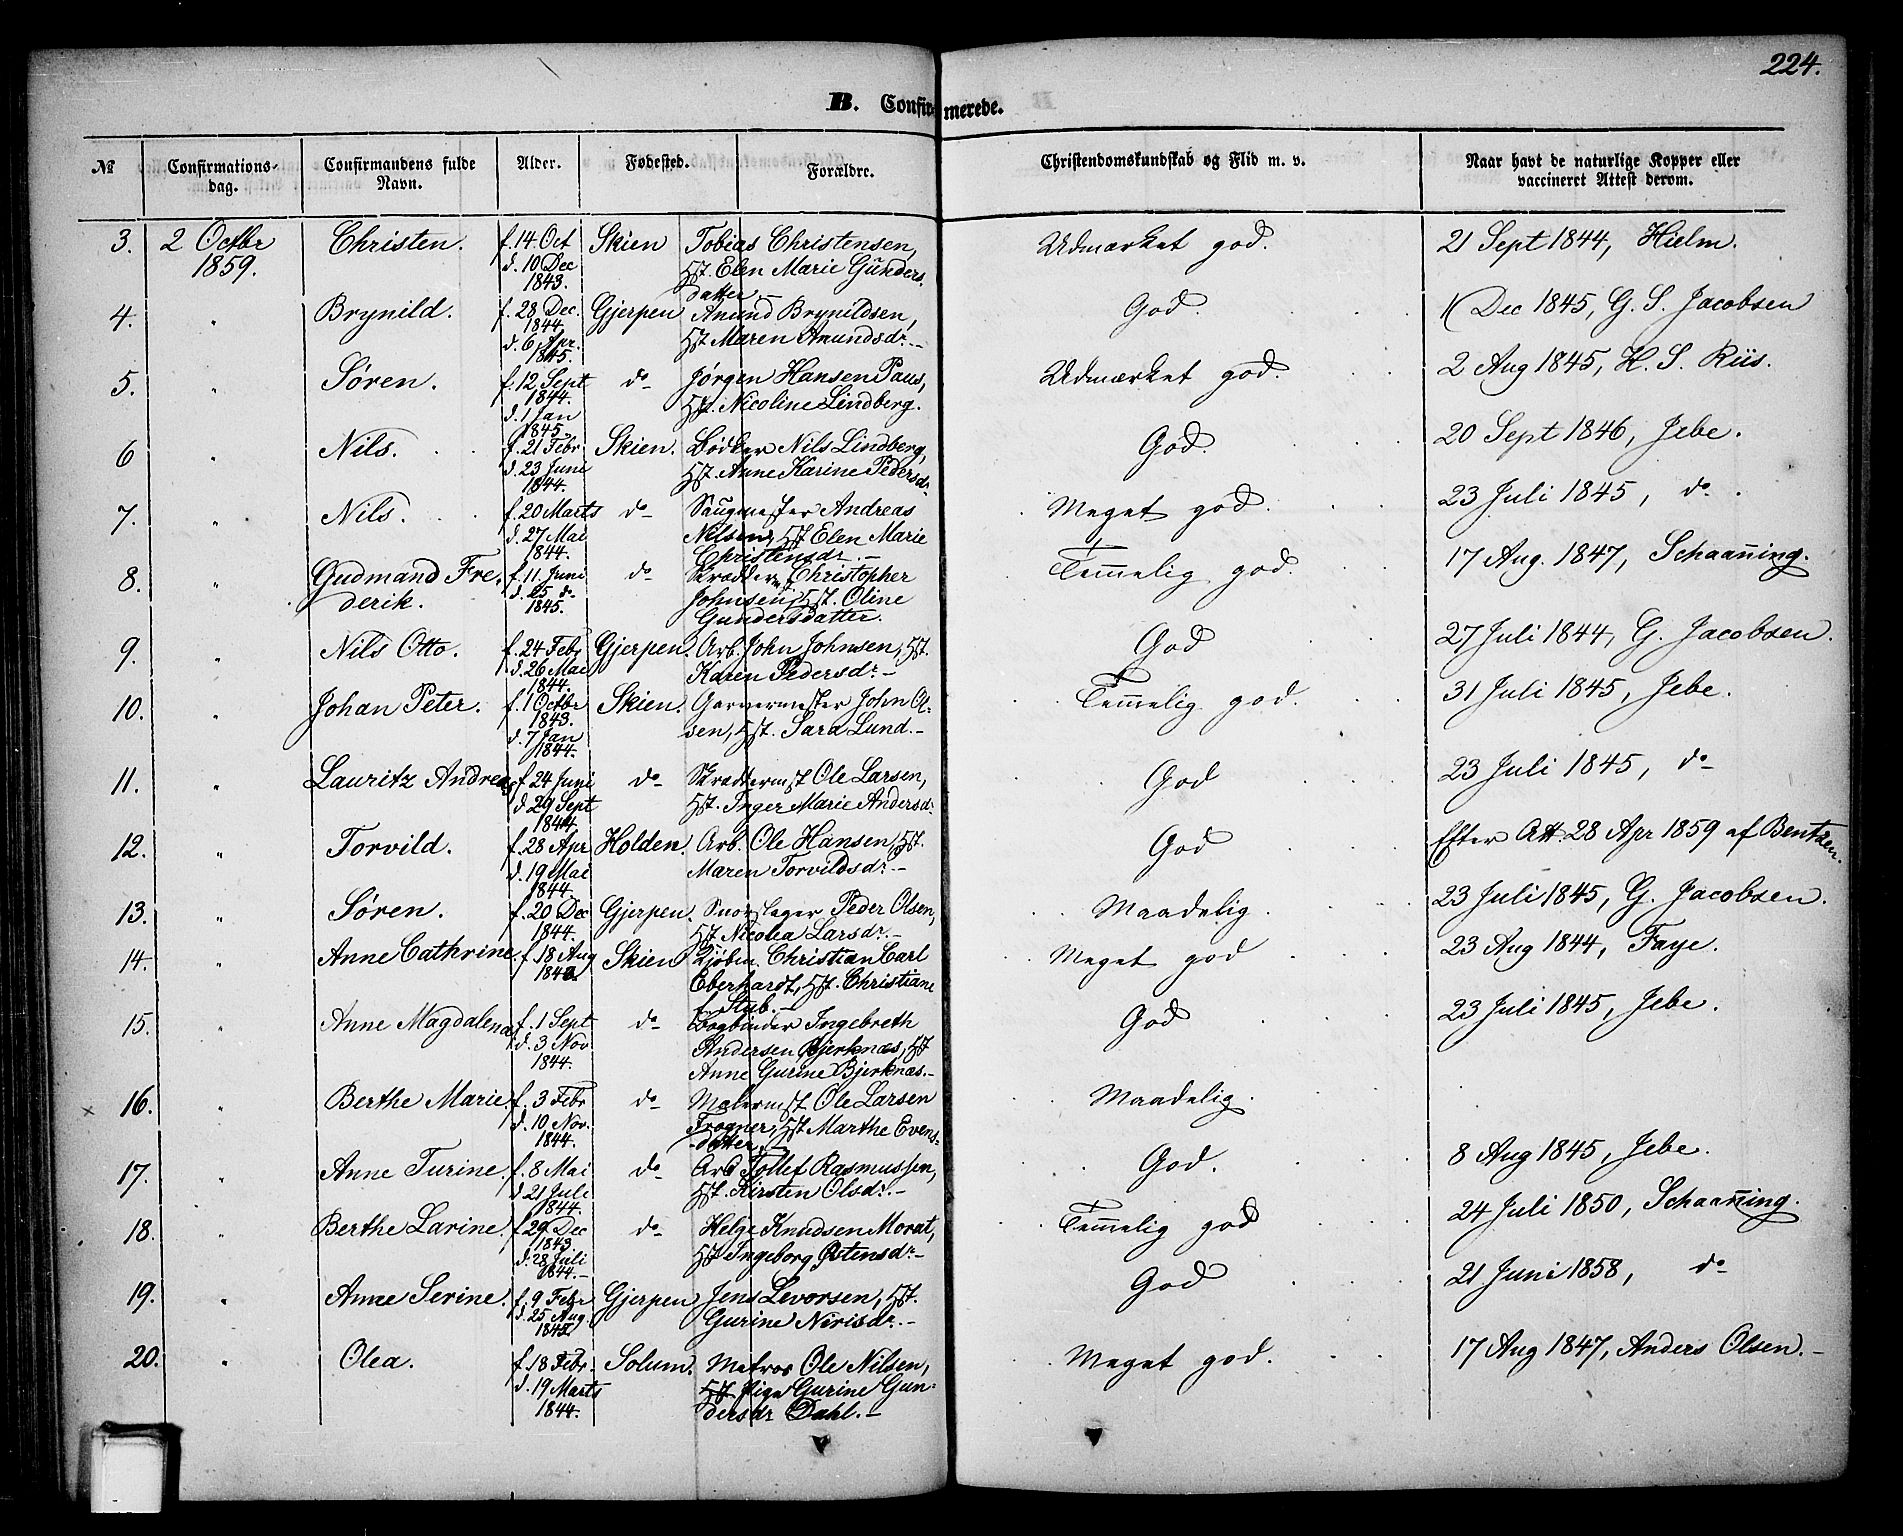 224.
B. Confirmerede.
№ Confirmations-dag. Confirmandens fulde Navn. Alder. Fødested. Forældre. Christendomskundskab og Flid m. v. Naar havt de naturlige Kopper eller vaccineret Attest derom.
3. 2 Octbr Christen. f. 14 Oct Skien Tobias Christensen, Udmærket god. 21 Sept 1844, Hielm.
1859. d. 10 Dec Hst. Elen Marie Gunders
1843. datter.
4. " Brynild. f. 28 Dec. Gjerpen Anund Brynildsen, God. Dec 1845, G. S. Jacobsen
1844.
d. 6 Apr. Hst Maren Amundsdr. –
1845.
5. " Søren. f. 12 Sept do Jørgen Hansen Paus, Udmærket god. 2 Aug 1845, H. S. Riis.
1844.
d. 1 Jan Hst. Nicoline Lindberg.
1845.
6 " Nils. f. 21 Febr Skien. Bødker Nils Lindberg, God. 20 Sept 1846, Jebe.
d. 23 Juni Hst Anne Karine Pedersdr.
1844.
7. " Nils. f. 20 Marts do Saugmester Andreas Meget god. 23 Juli 1845, do.
d. 27 Mai Nilsen, Hst Elen Marie
1844. Christensdr. –
8. " Gudmand Fre- f. 11. Juni do Skrædder Christopher Temmelig god. 17 Aug. 1847, Schaanning.
derik. d. 25 do Johnsen, Hst. Oline
1845. Gundersdatter.
9. " Nils Otto. f. 24 Febr Gjerpen. Arb. John Johnsen, Hst. God 27 Juli 1844, G. Jacobsen.
d. 26 Mai Karen Pedersdr. –
1844.
10. " Johan Peter. f. 1 Octbr Skien. Garvermester John Ol- Temmelig god. 31 Juli 1845, Jebe.
1843. sen, Hst. Sara Lund. –
d. 7 Jan
1844.
11. " Lauritz Andreas f. 24 Juni do Skrædderm st Ole Larsen, God 23 Juli 1845, do
d. 29 Sept Hst. Inger Marie Andersdr.
1844.
12. " Torvild. f. 28 Apr Holden. Arb. Ole Hansen, Hst. God Efter Att. 28 Apr 1859 af Bentzen.
d. 19 Mai Maren Torvildsdr. –
1844.
13. " Søren. f. 20 Dec Gjerpen. Peder Olsen, Maadelig. 23 Juli 1845, G. Jacobsen.
1844. Hst Nicolea Larsdr. –
14. " Anne Cathrine f. 18 Aug Skien Kjøbm. Christian Carl Meget god 23 Aug 1844, Faye.
Eberhardt, Hst. Christiane
f. Stub. –
15. " Anne Magdalena f. 1 Sept do Bogbinder Ingebreth God 23 Juli 1845, Jebe.
d. 3 Nov. Andersen Bjerknæs, Hst
1844. Anne Gurine Bjerknæs. –
× 16. " Berthe Marie. f. 3 Febr do Malerm st Ole Larsen Maadelig.
d. 10 Nov. Frogner, Hst Marthe Evens-
1844. datter. –
17. " Anne Turine. f. 8 Mai do Arb Tollef Rasmussen, God. 8 Aug 1845, Jebe.
d. 21 Juli Hst. Kirsten Olsdr. –
1844.
18. " Berthe Larine. f. 29 Dec do Helge Knudsen Morat, Temmelig god 24 Juli 1850, Schaanning.
1843
d. 28 Juli Hst Ingeborg Østensdr –
1844. –
19. " Anne Serine. f. 9 Febr Gjerpen Jens Levorsen, Hst. God 21 Juni 1858, do
d. 25 Aug. Gurine Nirisdr. –
20. " Olea. f. 18 Febr. Solum. Matros Ole Nilsen, Meget god. 17 Aug 1847, Anders Olsen. –
d. 19 Marts Hst Pige Gurine Gun-
1844. dersdr Dahl. –